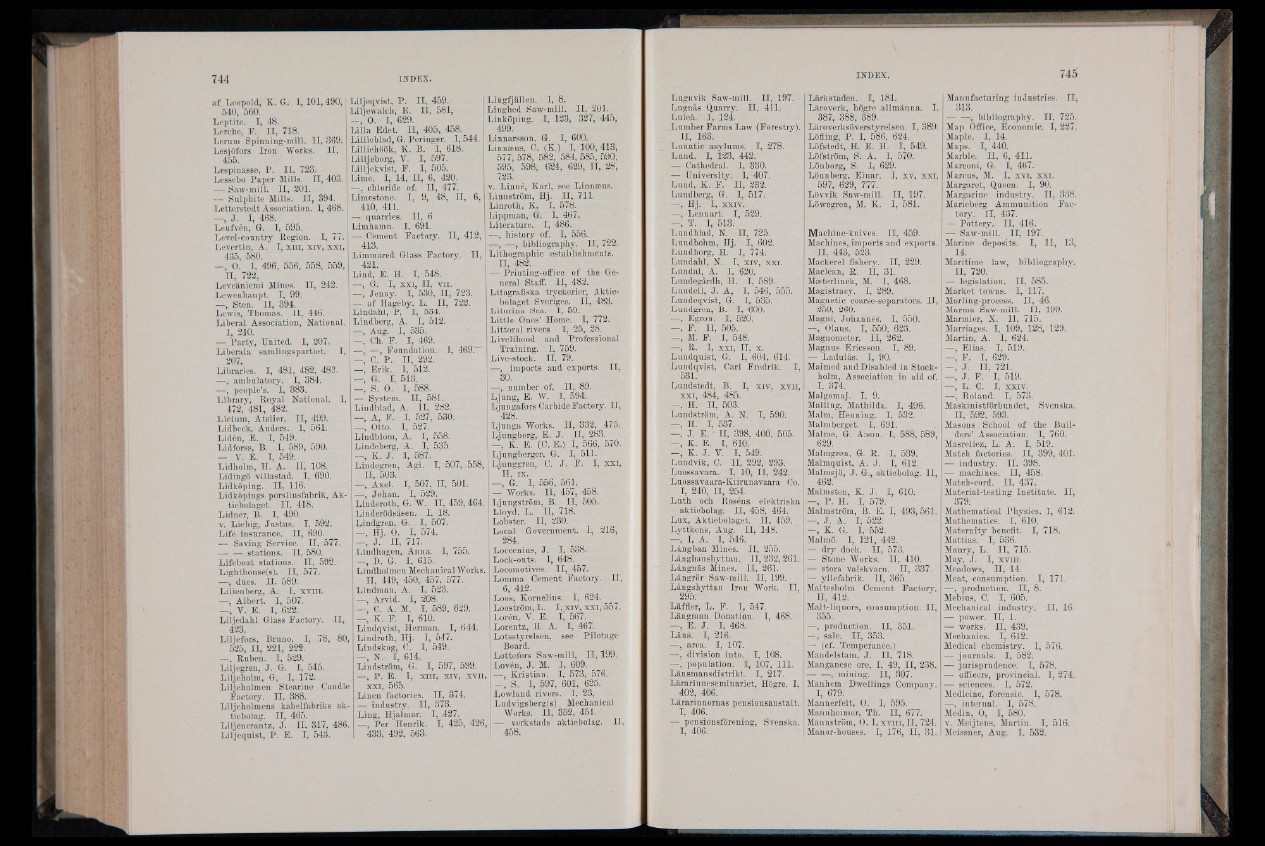 744
INDEX.
af Leopold, K. G. I, 101, 490,
540, 560.
Leptite. I, 48.
Lerche, F. II, 718.
Lerum Spinning-mill. II, 369.
Lesjöfors Iron Works. II,
455.
Lespinasse, P. II, 723.
Lessebo Paper Mills. II, 403.
— Saw-mill. II, 201.
— Sulphite Mills. II, 394.
Letterstedt Association. I, 468.
—, J. I, 468.
Leufvén, G. I, 595.
Level-country Region. I, 77.
Levertin, A. I, XIII, XIV, XXI,
435, 580.
—, O. I, 496, 556, 558, 559,
II, 722.
Leveäniemi Mines. II, 242.
Lewenhaupt. I, 99.
—, Sten. II, 394.
Lewis, Thomas. II, 446.
Liberal Association, National.
I, 210.
— Party, United. I, 207.
Liberala samlingspartiet. I,
207.
Libraries. I, 481, 482, 483.
—, ambulatory. I, 384.
—, people's. I, 383.
Library, Royal National. I,
472, 481, 482.
Licium, Atelier. II, 499.
Lidbeck, Anders. I, 561.
Lidén, E. I, 549.
Lidforss, B. I, 589, 590.
— V. E. I, 549.
Lidholm, H. A. II, 108.
Lidingö villastad. I, 690.
Lidköping. II, 116.
Lidköpings porslinsfabrik, Ak-
tiebolaget. II, 418.
Lidner, B. I, 490.
v. Liebig, Justus. I, 592.
Life insurance. II, 690.
— Saving Service. II, 577.
— — stations. II, 580.
Lifeboat stations. II, 592.
Lighthouse(s). II, 577.
—, dues. II. 589.
Lilienberg, A. I, XVIII.
—, Albert. I, 507.
—, V. E. I, 622.
Liljedahl Glass Factory. II,
423.
Liljefors, Bruno. I, 78, 80,
525, II, 221, 222.
—, Ruben. I, 529.
Liljegren, J. G. I, 545.
Liljeholm, G. I, 172.
Liljeholmen Stearine Candle
Factory. II, 388.
Liljeholmens kabelfabriks ak-
tiebolag. II, 465.
Liljencrantz, J. II, 317, 486.
Liljequist, P. E. I, 543.
Liljeqvist, P. II, 459.
Liljewalch, E. II, 581,
—, O. I, 629.
Lilla Edet. II, 405, 458.
Lillieblad, G. Peringer. I, 544.
Lilliehöök, K. B. I, 618.
Lilljeborg, V. I, 597.
Lilljekvist, F. I, 505.
Lime. I, 14, II, 6, 420.
—, chloride of. II, 477.
Limestone. I, 9, 48, II, 6,
410, 411.
— quarries. II, 6
Limhamn. I, 691.
— Cement Factory. II, 412,
413.
Limmared Glass Factory. II,
421.
Lind, E. H. I, 548.
—, G. I, XXI, II, VII.
—, Jenny. I, 530, II, 723.
— af Hageby, L. II, 722.
Lindahl, P. I, 534.
Lindberg, A. I, 512.
—, Aug. I, 535.
—, Ch. F. I, 469.
—, —, Foundation. I, 469.
—, C. P. II, 292.
—, Erik. I, 512.
—, G. I, 543.
—, S. O. I, 588.
— System. II, 581.
Lindblad, A. II, 282.
—, A. F. I, 527, 530.
—, Otto. I, 527.
Lindblom, A. I, 558.
Lindeberg, A. I, 535.
—, K. J. I, 587.
Lindegren, Agi. I, 507, 558,
II, 503.
—, Axel. I, 507, II, 501.
—, Johan. I, 529.
Linderoth, G. W. II, 459, 464.
Linderödsåsen. I, 18.
Lindgren, G. I, 507.
—, Hj. O. I, 574.
—, J. II, 717.
Lindhagen, Anna. I, 755.
—, D. G. I, 615.
Lindholmen Mechanical Works.
II, 449, 450, 457, 577.
Lindman, A. I, 523.
—, Arvid. I, 208.
—, C. A. M. I, 589, 629.
—, K. F. I, 610.
Lindqvist, Herman. I, 644.
Lindroth, Hj. I, 547.
Lindskog, C. I, 549.
—, N. I, 614.
Lindström, G. I, 597, 599.
—, P. E. I, XIII, XIV, XVII,
XXI, 565.
Linen factories. II, 374.
— industry. II, 373.
Ling, Hjalmar. I, 427.
—, Per Henrik. I, 425, 426,
433, 492, 563.
Lingfjällen. I, 8.
Linghed Saw-mill. II, 201.
Linköping. I, 123, 327, 445,
499.
Linnarsson, G. I, 600.
Linnæus, C. (K.) I, 100, 413,
577, 578, 582, 584, 585, 590,
595, 598, 624, 629, II, 28,
723.
v. Linné, Karl, see Linnæus.
Linnström, Hj. II, 711.
Linroth, K. I, 578.
Lippman, G. I, 467.
Literature. I, 486.
—, history of. I, 556.
—, —, bibliography. II, 722.
Lithographic establishments.
II, 482.
— Printing-office of the Ge-
neral Staff. II, 482.
Litografiska tryckerier, Aktie-
bolaget Sveriges. II, 483.
Litorina Sea. I, 59.
Little Ones' Home. I, 772.
Littoral rivers I, 25, 28.
Livelihood and Professional
Training. I, 759.
Live-stock. II, 79.
—, imports and exports. II,
80.
—, number of. II, 89.
Ljung, E. W. I, 594.
Ljungafors Carbide Factory. II,
428.
Ljunga Works. II, 332, 475.
Ljungberg, E. J. II, 283.
—, K. E. (C. E.) I, 566, 570.
Ljungberger, G. I, 511.
Ljunggren, C. J. F. I, XXI,
II, IX.
—, G. I, 556, 561.
— Works. II, 457, 458.
Ljungström, B. II, 505.
Lloyd, L. II, 718.
Lobster. II, 230.
Local Government. I, 216,
284.
Loccenius, J. I, 538.
Lock-outs. I, 648.
Locomotives. II, 457.
Lomma Cement Factory. II,
6, 412.
Loos, Kornelius. I, 624.
Looström, L. I, XIV, XXI, 557.
Lorén, V. E. I, 567.
Lorentz, H. A. I, 467.
Lotsstyrelsen, see Pilotage
Board.
Lottefors Saw-mill. II, 199.
Lovén, J. M. I. 609.
—, Kristian. I, 573, 576.
—, S. I, 597, 601, 625.
Lowland rivers. I, 23,
Ludvigsberg(s) Mechanical
Works. II, 352, 454.
— verkstads aktiebolag. II,
458.
INDEX.
745
Lugnvik Saw-mill. II, 197.
Lugnås Quarry. II, 411.
Luleå. I, 124.
Lumber Farms Law (Forestry).
II, 163.
Lunatic asylums. I, 278.
Lund. I, 123, 442.
— Cathedral. I, 330.
— University. I, 407.
Lund, K. F. II, 232.
Lundberg, G. I, 517.
—, Hj. I, XXIV.
—, Lennart. I, 529.
—, T. I, 513.
Lundblad, N. II, 725.
Lundbohm, Hj. I, 602.
Lundborg, H. I, 774.
Lundahl, N. I, XIV, XXI.
Lundal, A. I, 620.
Lundegårdh, H. I, 589.
Lundell, J. A. I, 546, 555.
Lundeqvist, G. I, 535.
Lundgren, B. I, 600.
—, Egron. I, 520.
—, F. II, 505.
—, M. F. I, 548.
—, R. I, XXI, II, X.
Lundquist, G. I, 604, 614.
Lundqvist, Carl Fredrik. I,
531.
Lundstedt, B. I, XIV, XVII,
XXI, 484, 485.
—, H. II, 503.
Lundström, A. N. I, 590.
—, H. I, 537.
—, J. E. II, 398, 400, 505.
—, K. E. I, 610.
—, K. J. V. I, 549.
Lundvik, C. II, 292, 293.
Luossavara. I, 10, II, 242.
Luossavaara-Kiirunavaara Co.
I, 240, II, 254.
Luth och Roséns elektriska
aktiebolag. II, 458, 464.
Lux, Aktiebolaget. II, 459.
Lyttkens, Aug. II, 148.
—, I. A. I, 546.
Långban Mines. II, 255.
Långbanshyttan. II, 232, 261.
Långnäs Mines. II, 261.
Långrör Saw-mill. II, 199.
Långshyttan Iron Work. II,
295.
Läffler, L. F. I, 547.
Längman Donation. I, 468.
—, E. J. I, 468.
Läns. I, 216.
—, area. I, 107.
—, division into. I, 108.
—, population. I, 107, 111.
Länsmansdistrikt. I, 217.
Lärarinneseminariet, Högre. I,
402, 406.
Lärarinnornas pensionsanstalt.
I, 406.
— pensionsförening, Svenska.
I, 406.
Lärkstaden. I, 181.
Läroverk, högre allmänna. I,
387, 388, 389.
Läroverksöverstyrelsen. I, 389.
Löfling, P. I, 586, 624.
Löfstedt, H. E. H. I, 549.
Löfström, S. A. I, 570.
Lönborg, S. I, 629.
Lönnberg, Einar. I, XV, XXI,
597, 629, 777.
Lövvik Saw-mill. II, 197.
Löwegren, M. K. I, 581.
Machine-knives. II, 459.
Machines, imports and exports.
II, 443, 523.
Mackerel fishery. II, 229.
Maclean, R. II, 31.
Mæterlinck, M. I, 468.
Magistracy. I, 289.
Magnetic coarse-separators. II,
259, 260.
Magni, Johannes. I, 550.
—, Olaus. I, 550, 623.
Magnometer. II, 262.
Magnus Ericsson. I, 89.
— Ladulås. I, 90.
Maimed and Disabled in Stock-
holm, Association in aid of.
I, 374.
Malgomaj. I, 9.
Malling, Mathilda. I, 496.
Malm, Henning. I, 532.
Malmberget. I, 691.
Malme, G. A:son. I, 588, 589,
629.
Malmgren, G. R. I, 539.
Malmquist, A. J. I, 612.
Malmsjö, J. G., aktiebolag. II,
462.
Malmsten, K. J. I, 610.
—, P. H. I, 579.
Malmström, B. E. I, 493, 561.
—, J. A. I, 522.
—, K. G. I, 552.
Malmö. I, 121, 442.
— dry dock. II, 573.
— Stone Works. II, 410.
— stora valskvarn. II, 337.
— yllefabrik. II, 365.
Maltesholm Cement Factory,
II, 412.
Malt-liquors, consumption. II,
355.
—, production. II, 351.
—, sale. II, 353.
— [cf. Temperance.]
Mandelstam, J. II, 718.
Manganese ore, I, 49, II, 238.
— —, mining. II, 307.
Manhem Dwellings Company.
I, 679.
Mannerfelt, O. I, 595.
Mannheimer, Th. II, 677.
Mannström, O. I, XVIII, II, 724.
Manor-houses. I, 176, II, 31.
Manufacturing industries. II,
313.
— —, bibliography. II, 725.
Map Office, Economic. I, 227.
Maple. I, 14.
Maps. I, 440.
Marble. II, 6, 411.
Marconi, G. I, 467.
Marcus, M. I, XVI, XXI.
Margaret, Queen. I, 90.
Margarine industry. II, 338.
Marieberg Ammunition Fac-
tory. II, 437.
— Pottery. II, 416.
— Saw-mill. II, 197.
Marine deposits. I, 11, 13,
14.
Maritime law, bibliography.
II, 720.
— legislation. II, 585.
Market towns. I, 117.
Marling-process. II, 46.
Marma Saw-mill. II, 199.
Marmier, X. II, 715.
Marriages. I, 109, 128, 129.
Martin, A. I, 624.
—, Elias. I, 519.
—, F. I, 629.
—, J. II, 721.
—, J. F. I, 519.
—, L. C. I, XXIV.
—, Roland. I, 573.
Maskinistförbundet, Svenska.
II, 592, 593.
Masons School of the Buil-
ders' Association. I, 760.
Masreliez, L. A. I, 519.
Match factories. II, 399, 401.
— industry. II, 398.
— machines. II, 458.
Match-cord. II, 437.
Material-testing institute. II,
379.
Mathematical Physics. I, 612.
Mathematics. I, 610.
Maternity benefit. I, 718.
Mattias. I, 536.
Maury, L. II, 715.
May, J. I, XVIII.
Meadows, II, 14.
Meat, consumption. I, 171.
—, production. II, 8.
Mebius, C. I, 605.
Mechanical industry. II, 16.
— power. II, 1.
— works. II, 439.
Mechanics. I, 612.
Medical chemistry. I, 576.
— journals. I, 582.
— jurisprudence. I, 578.
— officers, provincial. I, 274.
— sciences. I, 572.
Medicine, forensic. I, 578.
—, internal. I, 578.
Medin, O. I, 580.
v. Meijtens, Martin. I, 516.
Meissner, Aug. I, 532.